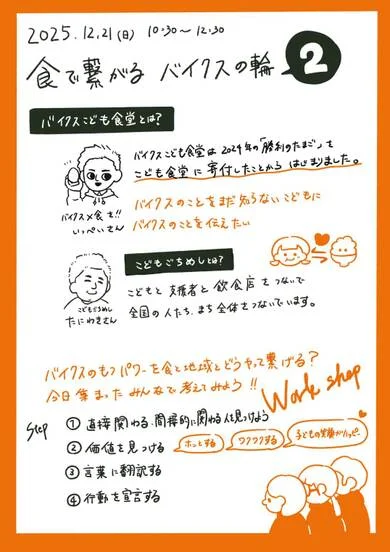 2025.12.21(日) 10:30〜12:30
食で繋がる バイクスの輪 2
バイクスこども食堂とは?
バイクスこども食堂は2024年の「勝利のたまご」を
こども食堂に寄付したことから はじまりました。
バイクス×食を!!
いっぺいさん
バイクスのことをまだ知らないこどもに
バイクスのことを伝えたい
こどもごちめしとは?
こどもと支援者と飲食店をつないで
全国の人たち、まち全体をつないでいます。
こどもごちめし
たにわきさん
バイクスのもつパワーを食と地域とどうやって繋げる?
今日集まったみんなで考えてみよう!!
Work shop
Step
① 直接関わる、間接的に関わる人を見つけよう
② 価値を見つける
ホッとする
ワクワクする
子どもの笑顔がハッピー
③ 言葉に翻訳する
④ 行動を宣言する